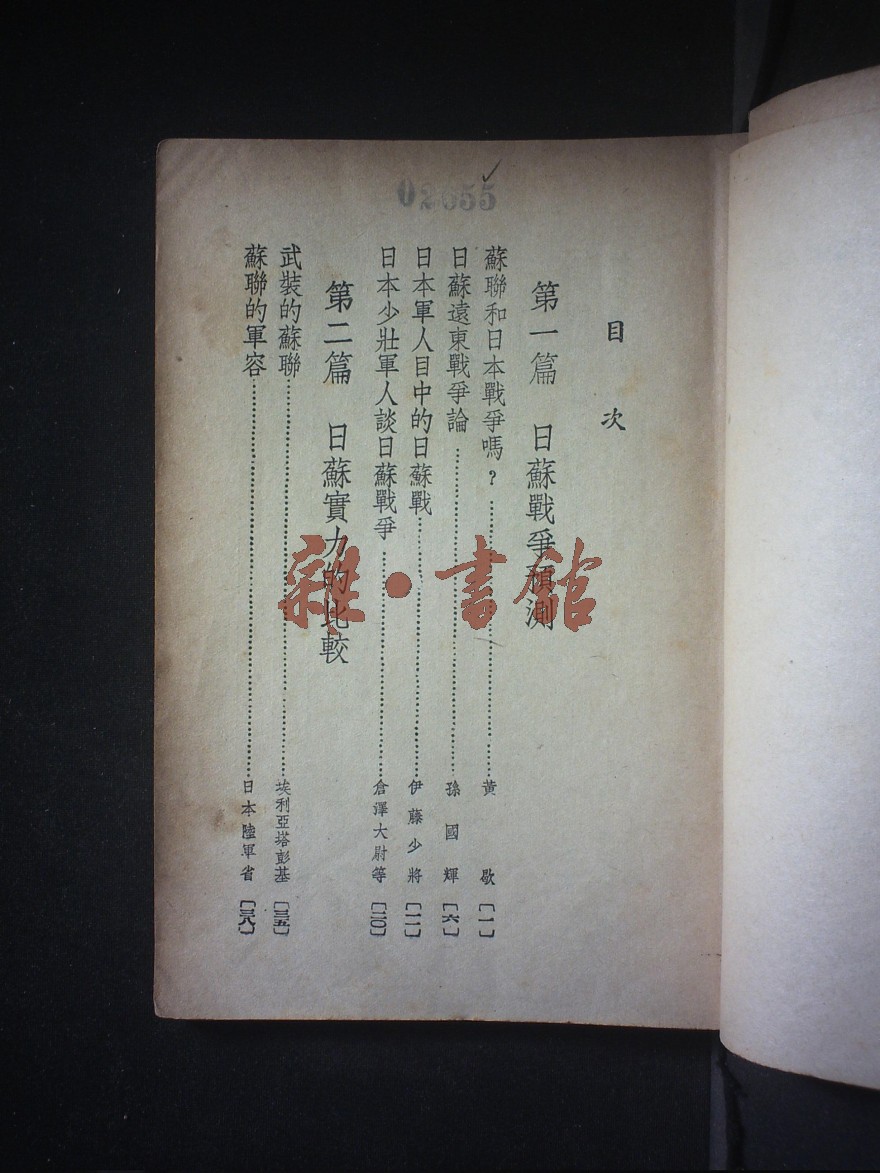 02655
目次
第一篇 日蘇戰爭預測
蘇聯和日本戰爭嗎？……黃歇〔一〕
日蘇遠東戰爭論……孫國輝〔六〕
日本軍人目中的日蘇戰……伊藤少將〔一一〕
日本少壯軍人談日蘇戰爭……倉澤大尉等〔二〇〕
第二篇 日蘇實力的比較
武裝的蘇聯……埃利亞塔彭基〔三五〕
蘇聯的軍容……日本陸軍省〔三八〕
雜·書館